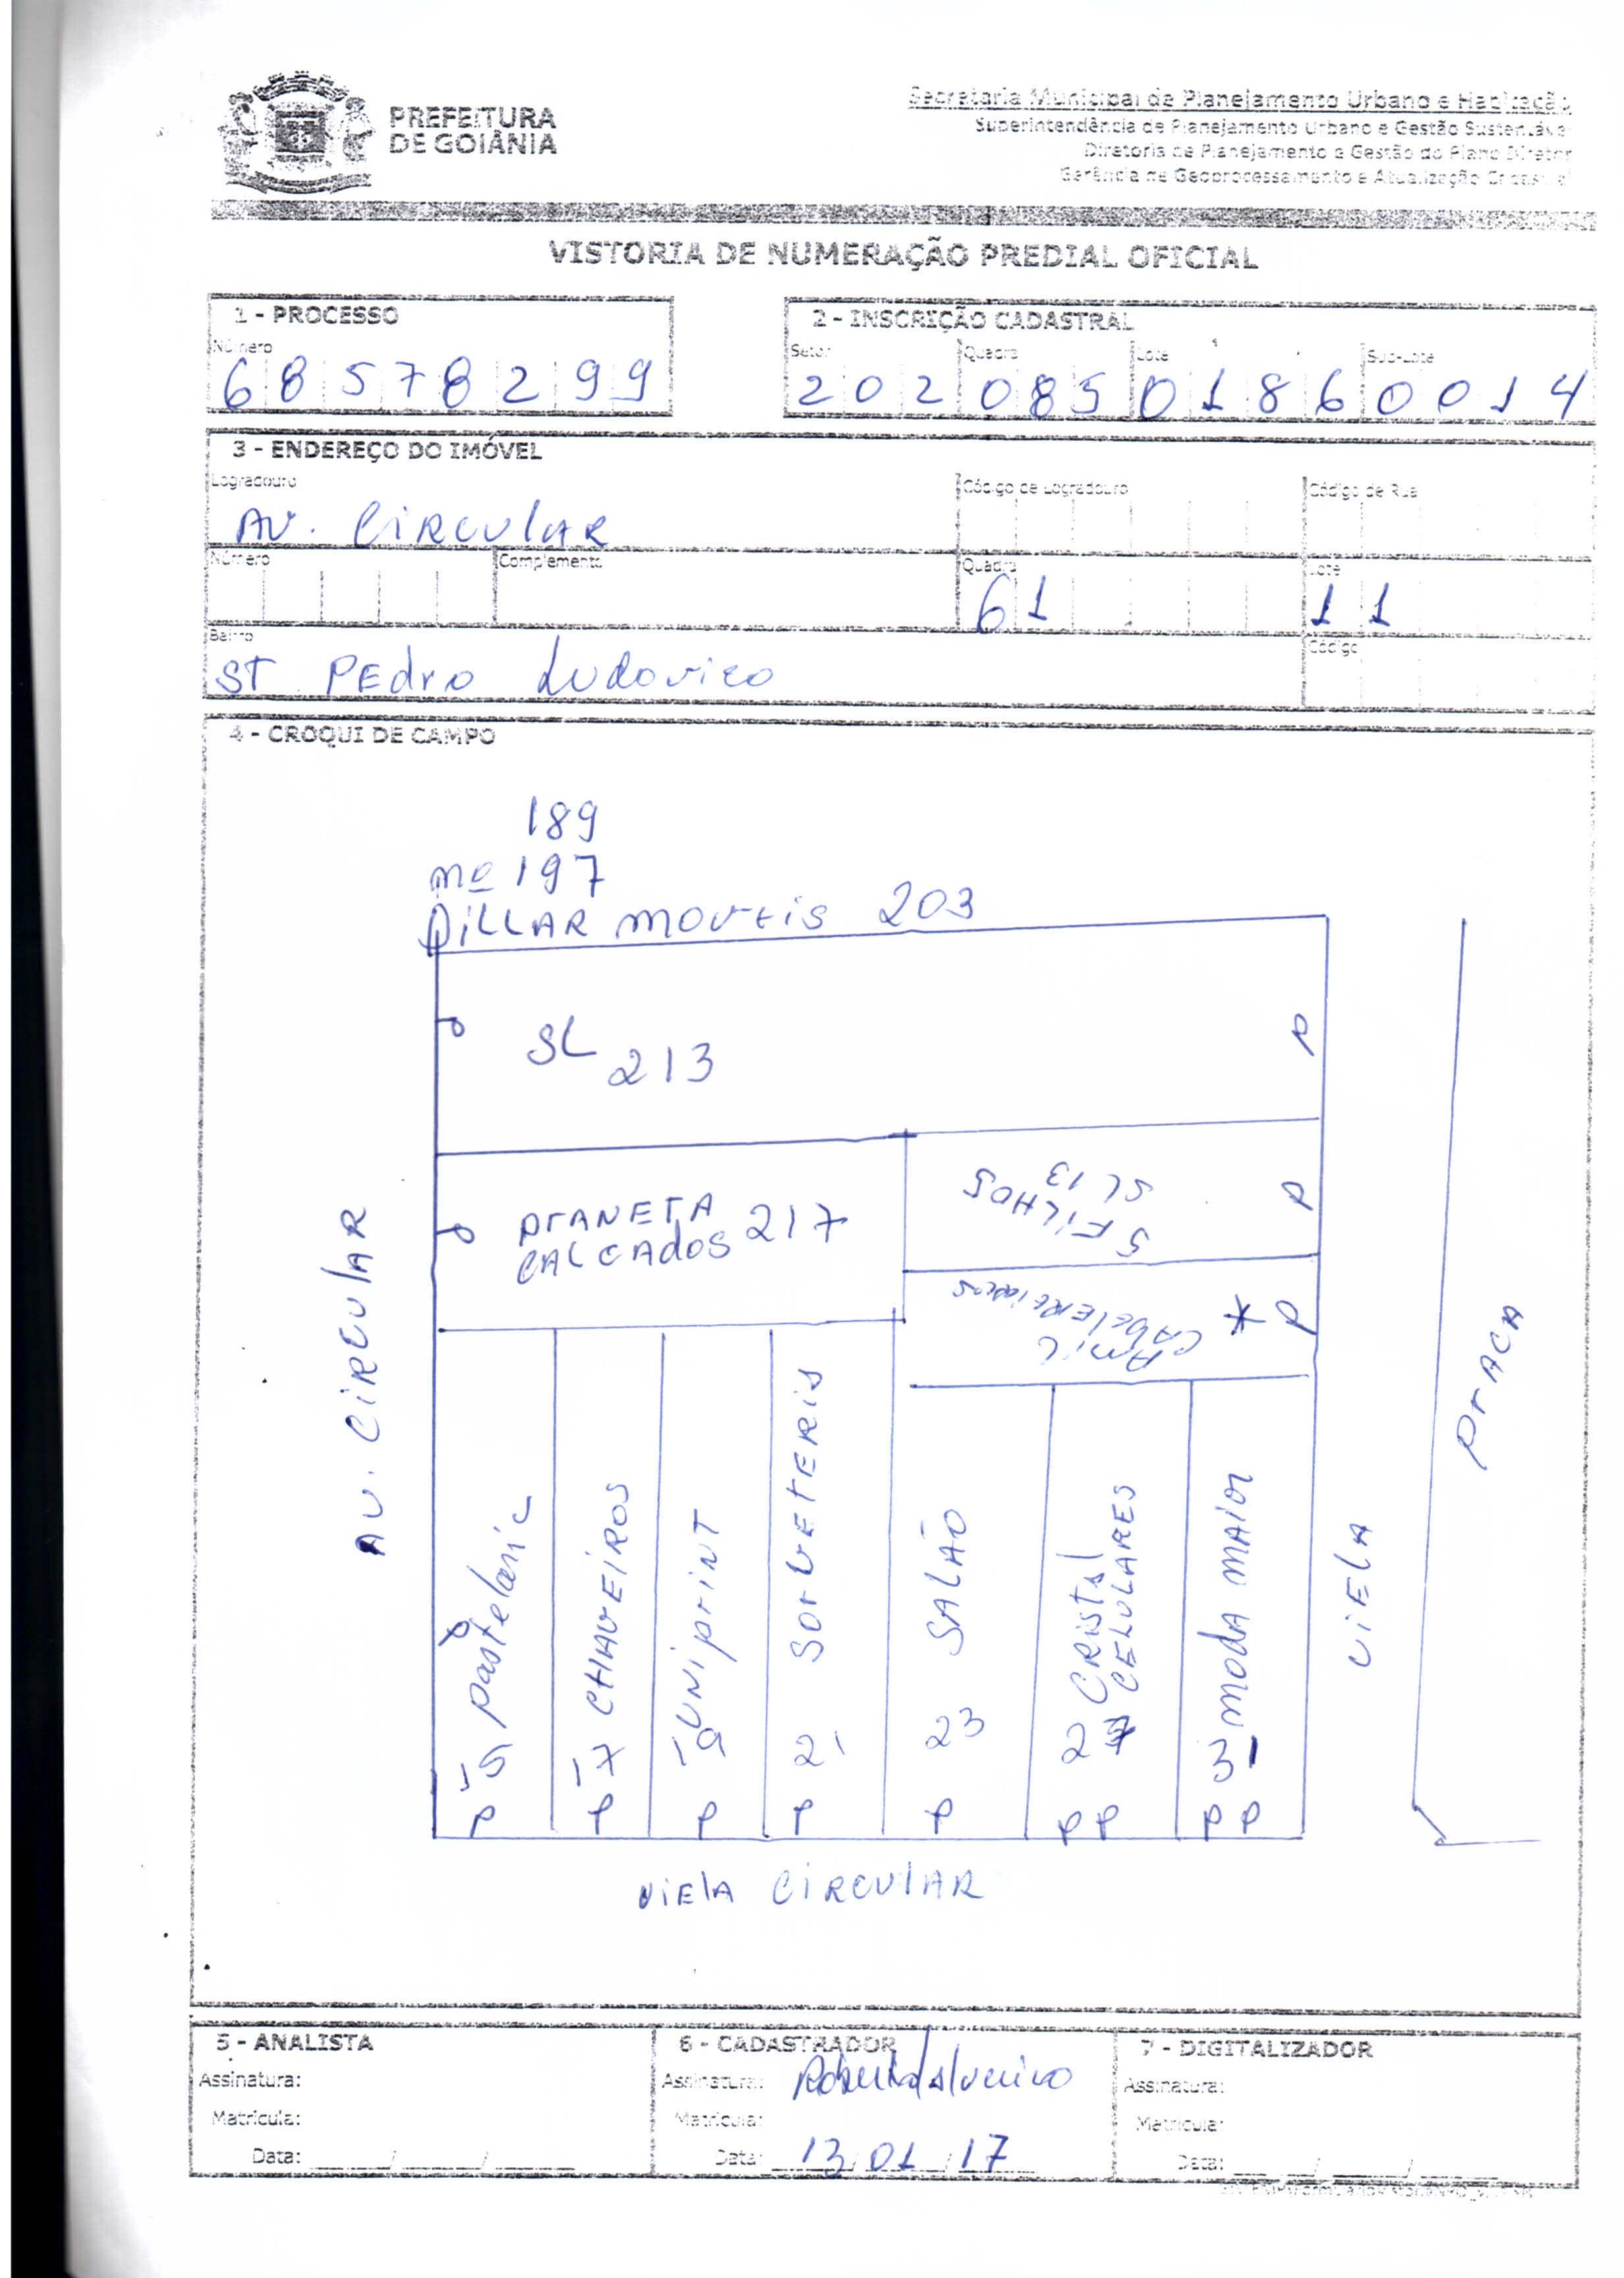 PREFEITURA
DE GOIÂNIA
Secretaria Municipal de Planejamento Urbano e Habitação
Superintendência de Planejamento Urbano e Gestão Sustentável
Diretoria de Planejamento e Gestão do Plano Diretor
Gerência de Geoprocessamento e Atualização Cadastral
VISTORIA DE NUMERAÇÃO PREDIAL OFICIAL
1 - PROCESSO
Número
68578299
2 - INSCRIÇÃO CADASTRAL
Setor Quadra Lote Sub-Lote
202 085 0186 0014
3 - ENDEREÇO DO IMÓVEL
Logradouro Código de Logradouro Código de Rua
AV. CIRCULAR
Número Complemento Quadra Lote
61 11
Bairro Código
ST PEdro Ludovico
4 - CROQUI DE CAMPO
189
nº 197
DILLAR MOVEIS 203
SL 213
P
P
PLANETA
CALCADOS 217
P
5 FILHOS
SL 13
P
AMIL
CABELEREIROS
* P
AV. CIRCULAR
P 15 pastelaric
P 17 CHAVEIROS
P 19 UNIPRINT
P 21 SORVETERIS
P 23 SALÃO
PP 27 CRISTAL
CELULARES
PP 31 MODA MAIOR
VIELA
PrACA
VIELA CIRCULAR
5 - ANALISTA
Assinatura:
Matrícula:
Data: ___/___/___
6 - CADASTRADOR
Assinatura:
Matrícula:
Data: 13/01/17
7 - DIGITALIZADOR
Assinatura:
Matrícula:
Data: ___/___/___